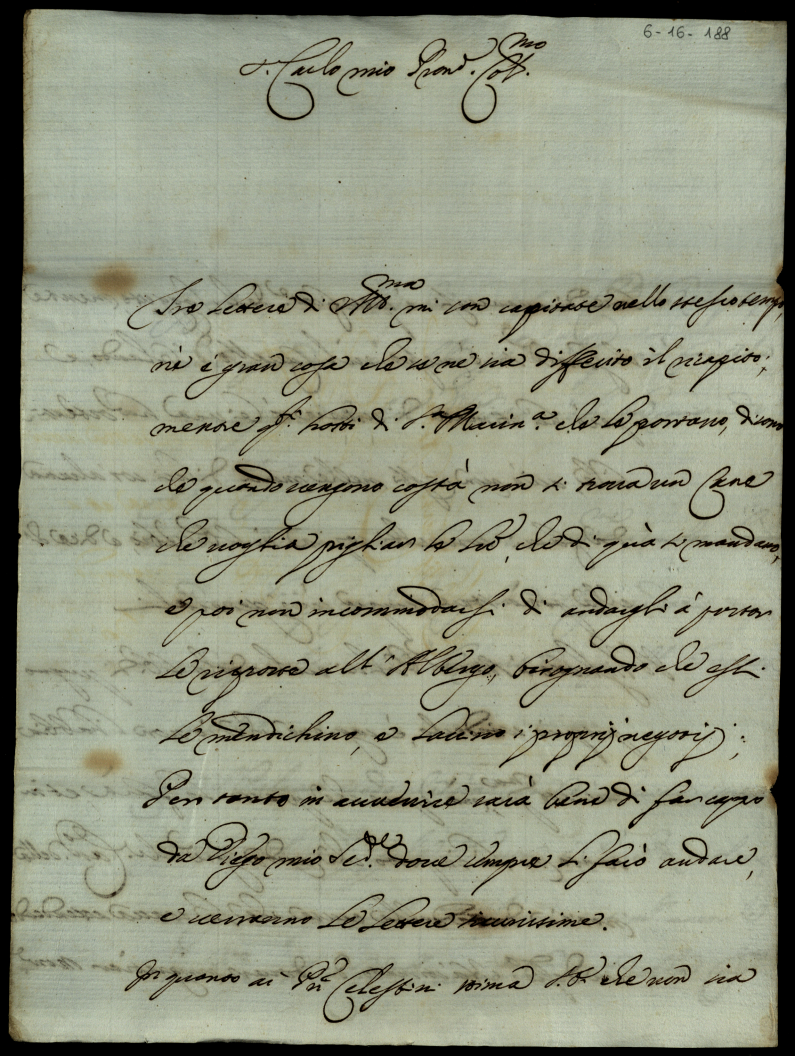 6-16-188
S.r Carlo mio Pron.e Col.mo
Tre lettere di VS. Ill.ma mi son capitate nello stesso tempo,
nè è gran cosa che se ne sia differito il recapito;
mentre q.ti di S.ta Marin.a che le portano, dicono
che quando vengono costà non si trova un Cane
che voglia pigliar le lre, che di quà si mandano,
e poi non incommodarsi di andargli à portar
le risposte all' Albergo, bisognando che essi
le mendichino, e lascino i proprij negozij;
Per tanto in avvenire sarà bene di far capo
da Diego mio Sed.le dove sempre li farò andare,
e verranno le lettere sicurissime.
In quanto ai PP.ri Celestini stima V.S. che non sia